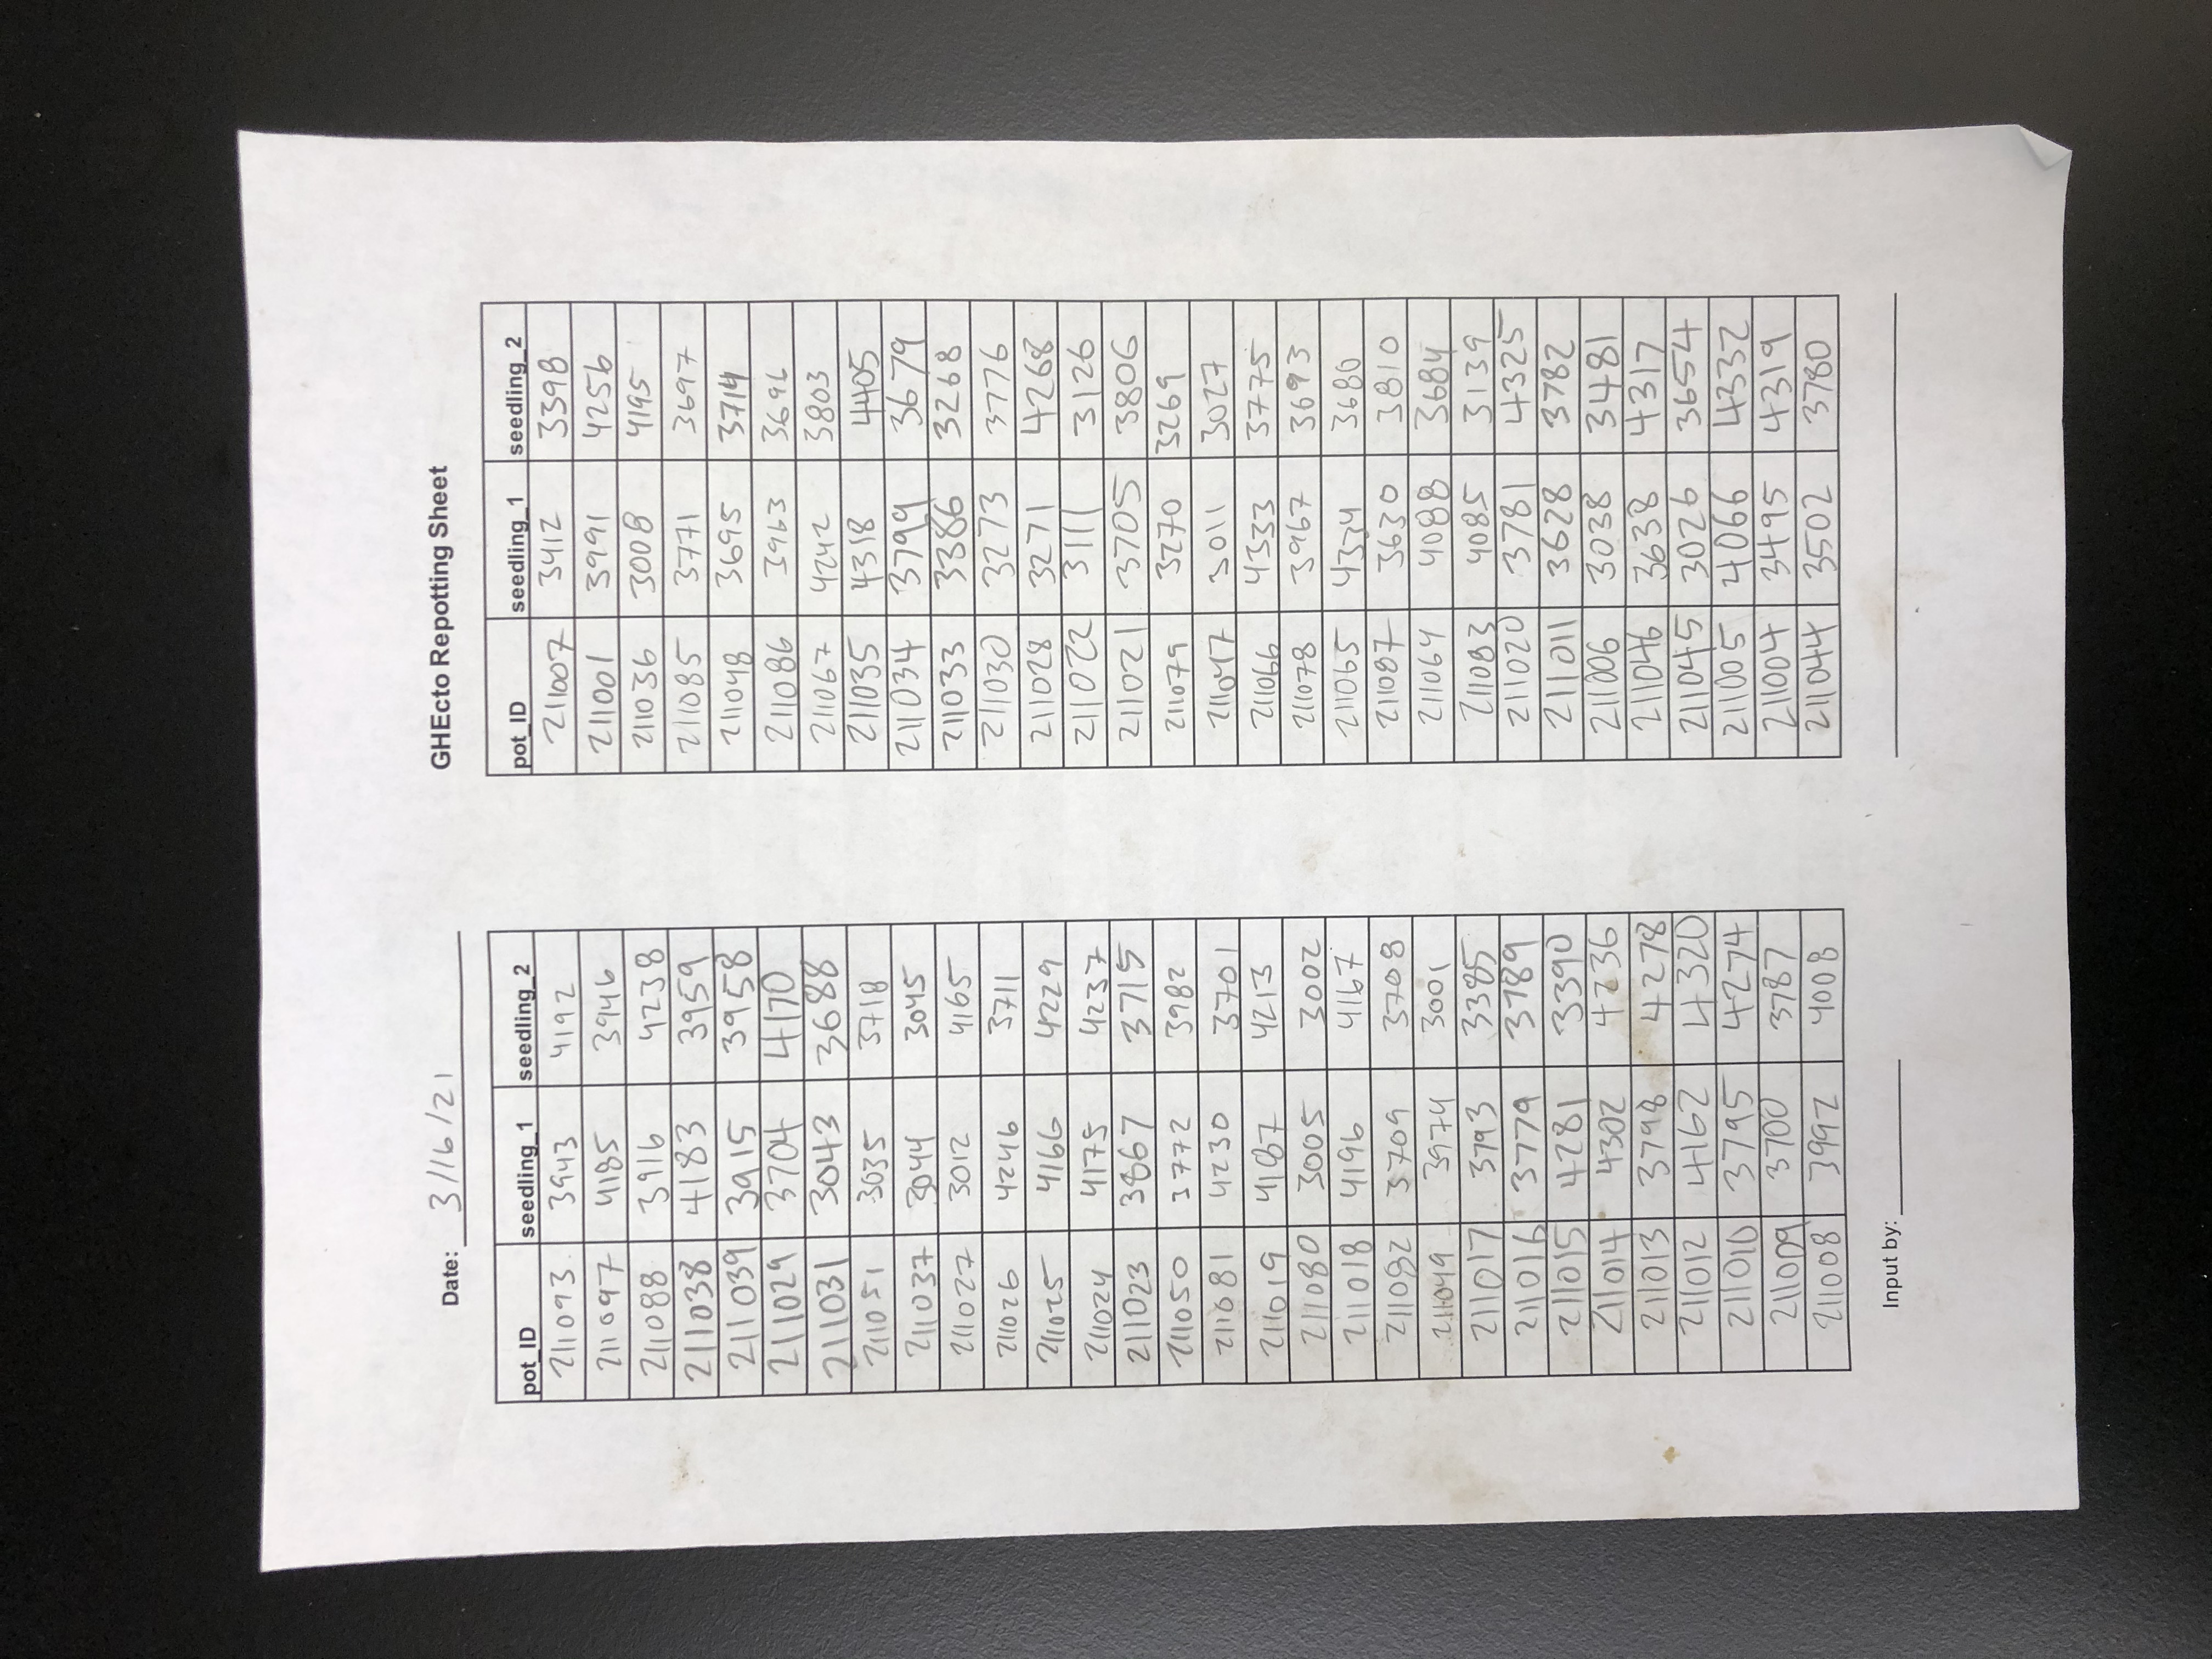 Date: 3/16/21
pot_ID seedling_1 seedling_2
211093 3943 4192
211097 4185 3946
211088 3916 4238
211038 4183 3959
211039 3915 3958
211029 3704 4170
211031 3043 3688
211051 3035 3718
211037 3044 3045
211027 3012 4165
211026 4246 3711
211025 4166 4229
211024 4175 4237
211023 3867 3715
211050 3772 3982
211081 4230 3701
211019 4187 4213
211080 3005 3002
211018 4196 4167
211082 3709 3708
211049 3974 3001
211017 3793 3385
211016 3779 3789
211015 4281 3390
211014 4302 4236
211013 3798 4278
211012 4162 4320
211010 3795 4274
211009 3700 3787
211008 3992 4008
Input by:
GHEcto Repotting Sheet
pot_ID seedling_1 seedling_2
211007 3412 3398
211001 3991 4256
211036 3008 4195
211085 3771 3697
211048 3695 3714
211086 3963 3696
211067 4242 3803
211035 4318 4405
211034 3799 3679
211033 3386 3268
211030 3273 3776
211028 3271 4268
211022 3111 3126
211021 3705 3806
211079 3270 3269
211047 3011 3027
211066 4333 3775
211078 3967 3693
211065 4334 3680
211087 3630 3810
211064 4088 3684
211083 4085 3139
211020 3781 4325
211011 3628 3782
211006 3038 3481
211046 3638 4317
211045 3026 3654
211005 4066 4332
211004 3495 4319
211044 3502 3780